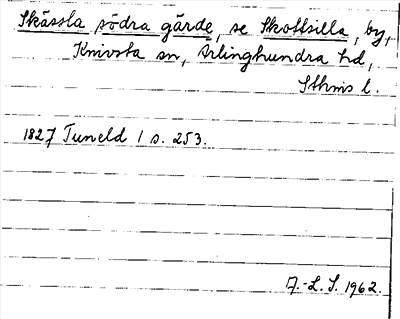 Skässla södra gärde, se Skottsilla, by,
Knivsta sn, Ärlinghundra hd,
Sthms l.
1827 Tuneld 1 s. 253.
A.-L. S. 1962.